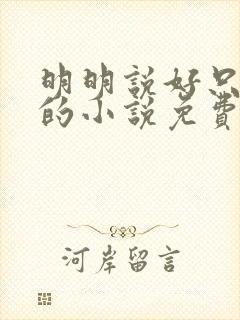 明明說好只
的小說免費
河岸留言